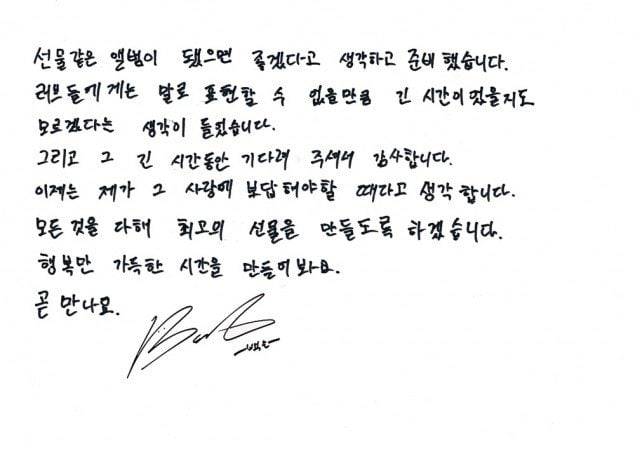 선물같은 앨범이 됐으면 좋겠다고 생각하고 준비했습니다.
러브들에게는 말로 표현할 수 없을만큼 긴 시간이였을지도
모르겠다는 생각이 들었습니다.
그리고 그 긴 시간동안 기다려 주셔서 감사합니다.
이제는 제가 그 사랑에 보답해야할 때라고 생각합니다.
모든것을 다해 최고의 선물을 만들도록 하겠습니다.
행복만 가득한 시간을 만들어봐요.
곧 만나요.